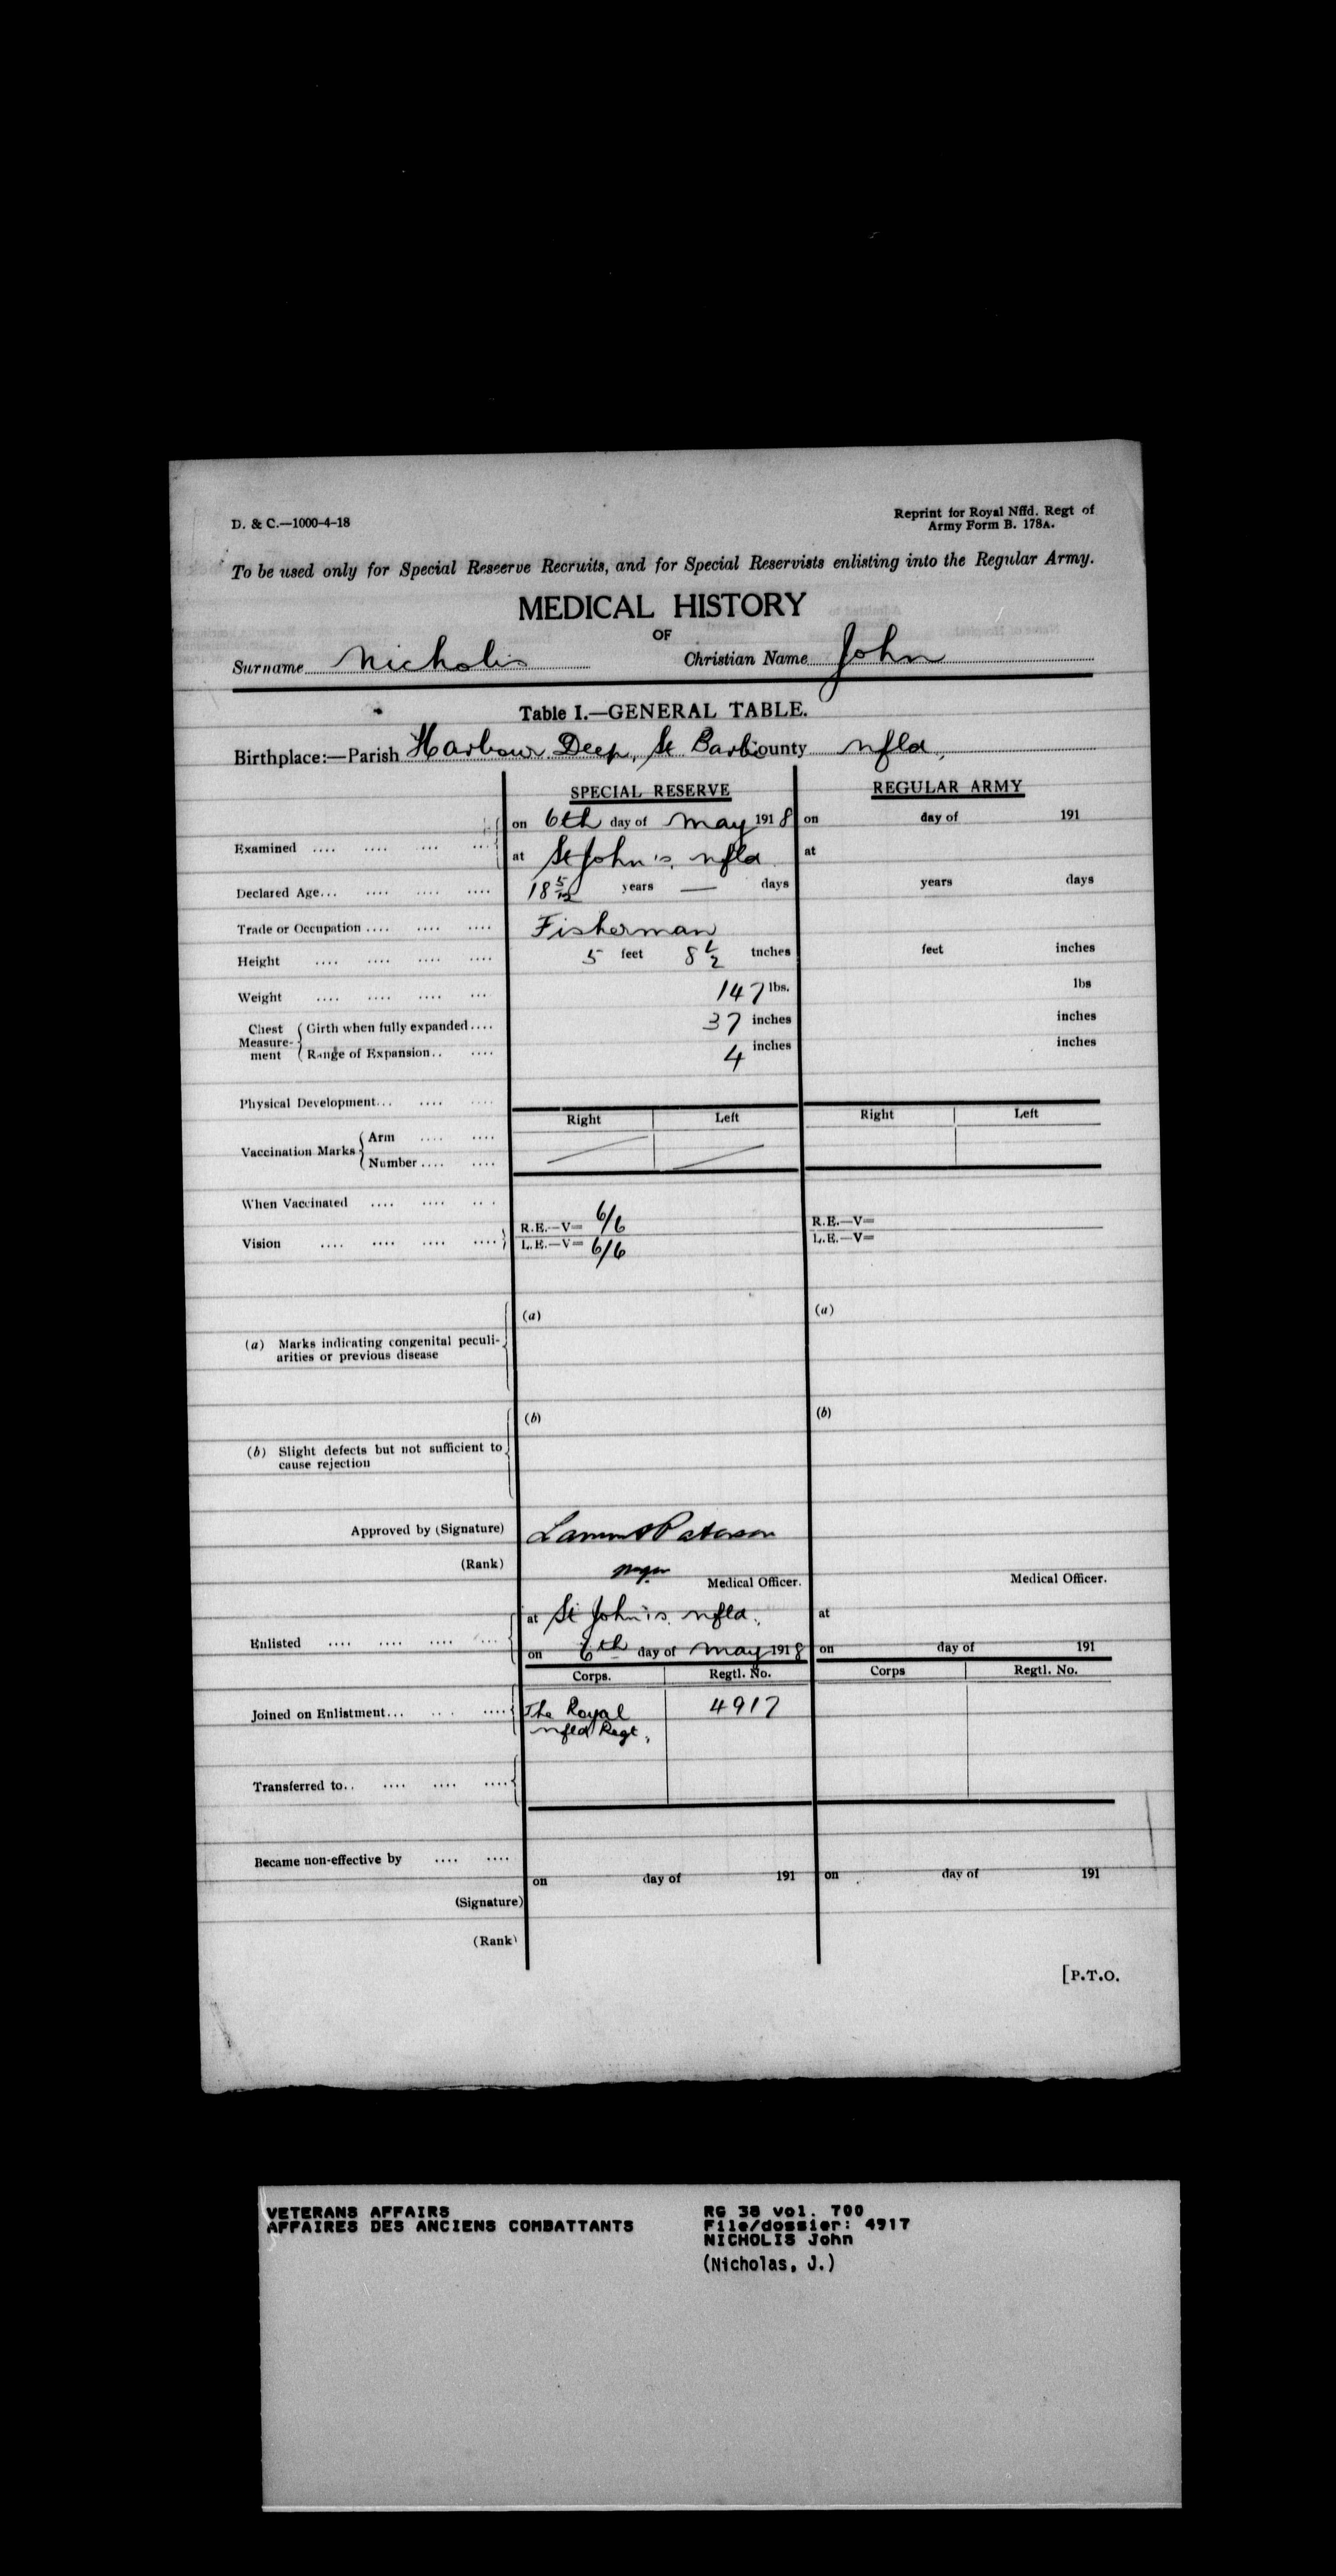 D. & C.—1000-4-18
Reprint for Royal Nffd. Regt of
Army Form B. 178A.
To be used only for Special Reserve Recruits, and for Special Reservists enlisting into the Regular Army.
MEDICAL HISTORY
OF
Surname Nicholis Christian Name John
Table I.—GENERAL TABLE.
Birthplace:—Parish Harbour Deep, St Barb County Nfld,
SPECIAL RESERVE REGULAR ARMY
on 6th day of May 1918 on day of 191
Examined .... .... .... ....
at St John's, Nfld at
Declared Age... .... .... .... 18 5/12 years — days years days
Trade or Occupation .... .... .... Fisherman
Height .... .... .... .... 5 feet 8 1/2 inches feet inches
Weight .... .... .... ... 147 lbs. lbs
Chest Measurement { Girth when fully expanded .... 37 inches inches
Range of Expansion.. .... 4 inches inches
Physical Development... .... ....
Right Left Right Left
Vaccination Marks { Arm .... ....
Number .... ....
When Vaccinated .... .... ...
Vision .... .... .... .... R.E.—V= 6/6 R.E.—V=
L.E.—V= 6/6 L.E.—V=
(a) (a)
(a) Marks indicating congenital peculi-
arities or previous disease
(b) (b)
(b) Slight defects but not sufficient to
cause rejection
Approved by (Signature) Lamont Paterson
(Rank) Major Medical Officer. Medical Officer.
at St John's, Nfld. at
Enlisted .... .... .... ....
on 6th day of May 1918 on day of 191
Corps. Regtl. No. Corps Regtl. No.
Joined on Enlistment... ... .... The Royal 4917
Nfld Regt,
Transferred to.. .... .... ....
Became non-effective by .... ....
on day of 191 on day of 191
(Signature)
(Rank)
[P.T.O.
VETERANS AFFAIRS RG 38 vol. 700
AFFAIRES DES ANCIENS COMBATTANTS File/dossier: 4917
NICHOLIS John
(Nicholas, J.)